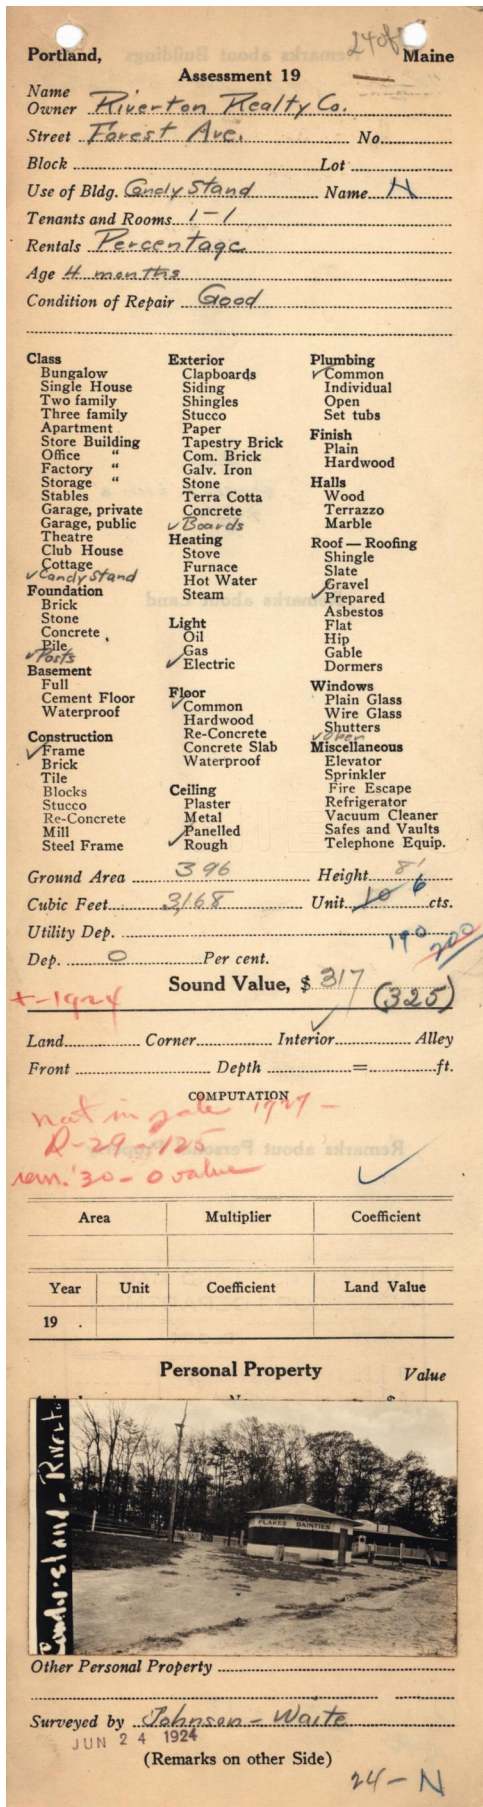 24 of
Portland, Maine
Assessment 19
Name
Owner Riverton Realty Co.
Street Forest Ave. No.
Block Lot
Use of Bldg. Candy Stand Name N
Tenants and Rooms 1-1
Rentals Percentage
Age 4 months
Condition of Repair Good
Class
Bungalow
Single House
Two family
Three family
Apartment
Store Building
Office "
Factory "
Storage "
Stables
Garage, private
Garage, public
Theatre
Club House
Cottage
✓Candy Stand
Foundation
Brick
Stone
Concrete
Pile
✓Posts
Basement
Full
Cement Floor
Waterproof
Construction
✓Frame
Brick
Tile
Blocks
Stucco
Re-Concrete
Mill
Steel Frame
Exterior
Clapboards
Siding
Shingles
Stucco
Paper
Tapestry Brick
Com. Brick
Galv. Iron
Stone
Terra Cotta
Concrete
✓Boards
Heating
Stove
Furnace
Hot Water
Steam
Light
Oil
Gas
✓Electric
Floor
✓Common
Hardwood
Re-Concrete
Concrete Slab
Waterproof
Ceiling
Plaster
Metal
Panelled
✓Rough
Plumbing
✓Common
Individual
Open
Set tubs
Finish
Plain
Hardwood
Halls
Wood
Terrazzo
Marble
Roof — Roofing
Shingle
Slate
Gravel
✓Prepared
Asbestos
Flat
Hip
Gable
Dormers
Windows
Plain Glass
Wire Glass
Shutters
✓Open
Miscellaneous
Elevator
Sprinkler
Fire Escape
Refrigerator
Vacuum Cleaner
Safes and Vaults
Telephone Equip.
Ground Area 396 Height 8'
Cubic Feet 3,168 Unit 10 6 cts.
Utility Dep.
190 200
Dep. 0 Per cent.
Sound Value, $ 317 (325)
+-1924
Land Corner Interior Alley
Front Depth = ft.
COMPUTATION
not in sale 1927 -
D-29-125
rem. '30 - 0 value
Area Multiplier Coefficient
Year Unit Coefficient Land Value
19
Personal Property Value
Candy stand - Rivert
FLAKES DAINTIES
Other Personal Property
Surveyed by Johnson - Waite
JUN 24 1924
(Remarks on other Side)
24 - N